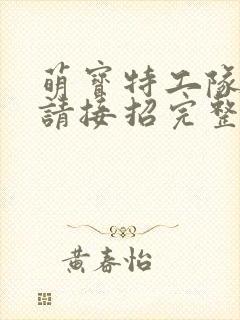 萌寳特工隊
請接招完整
黃春怡